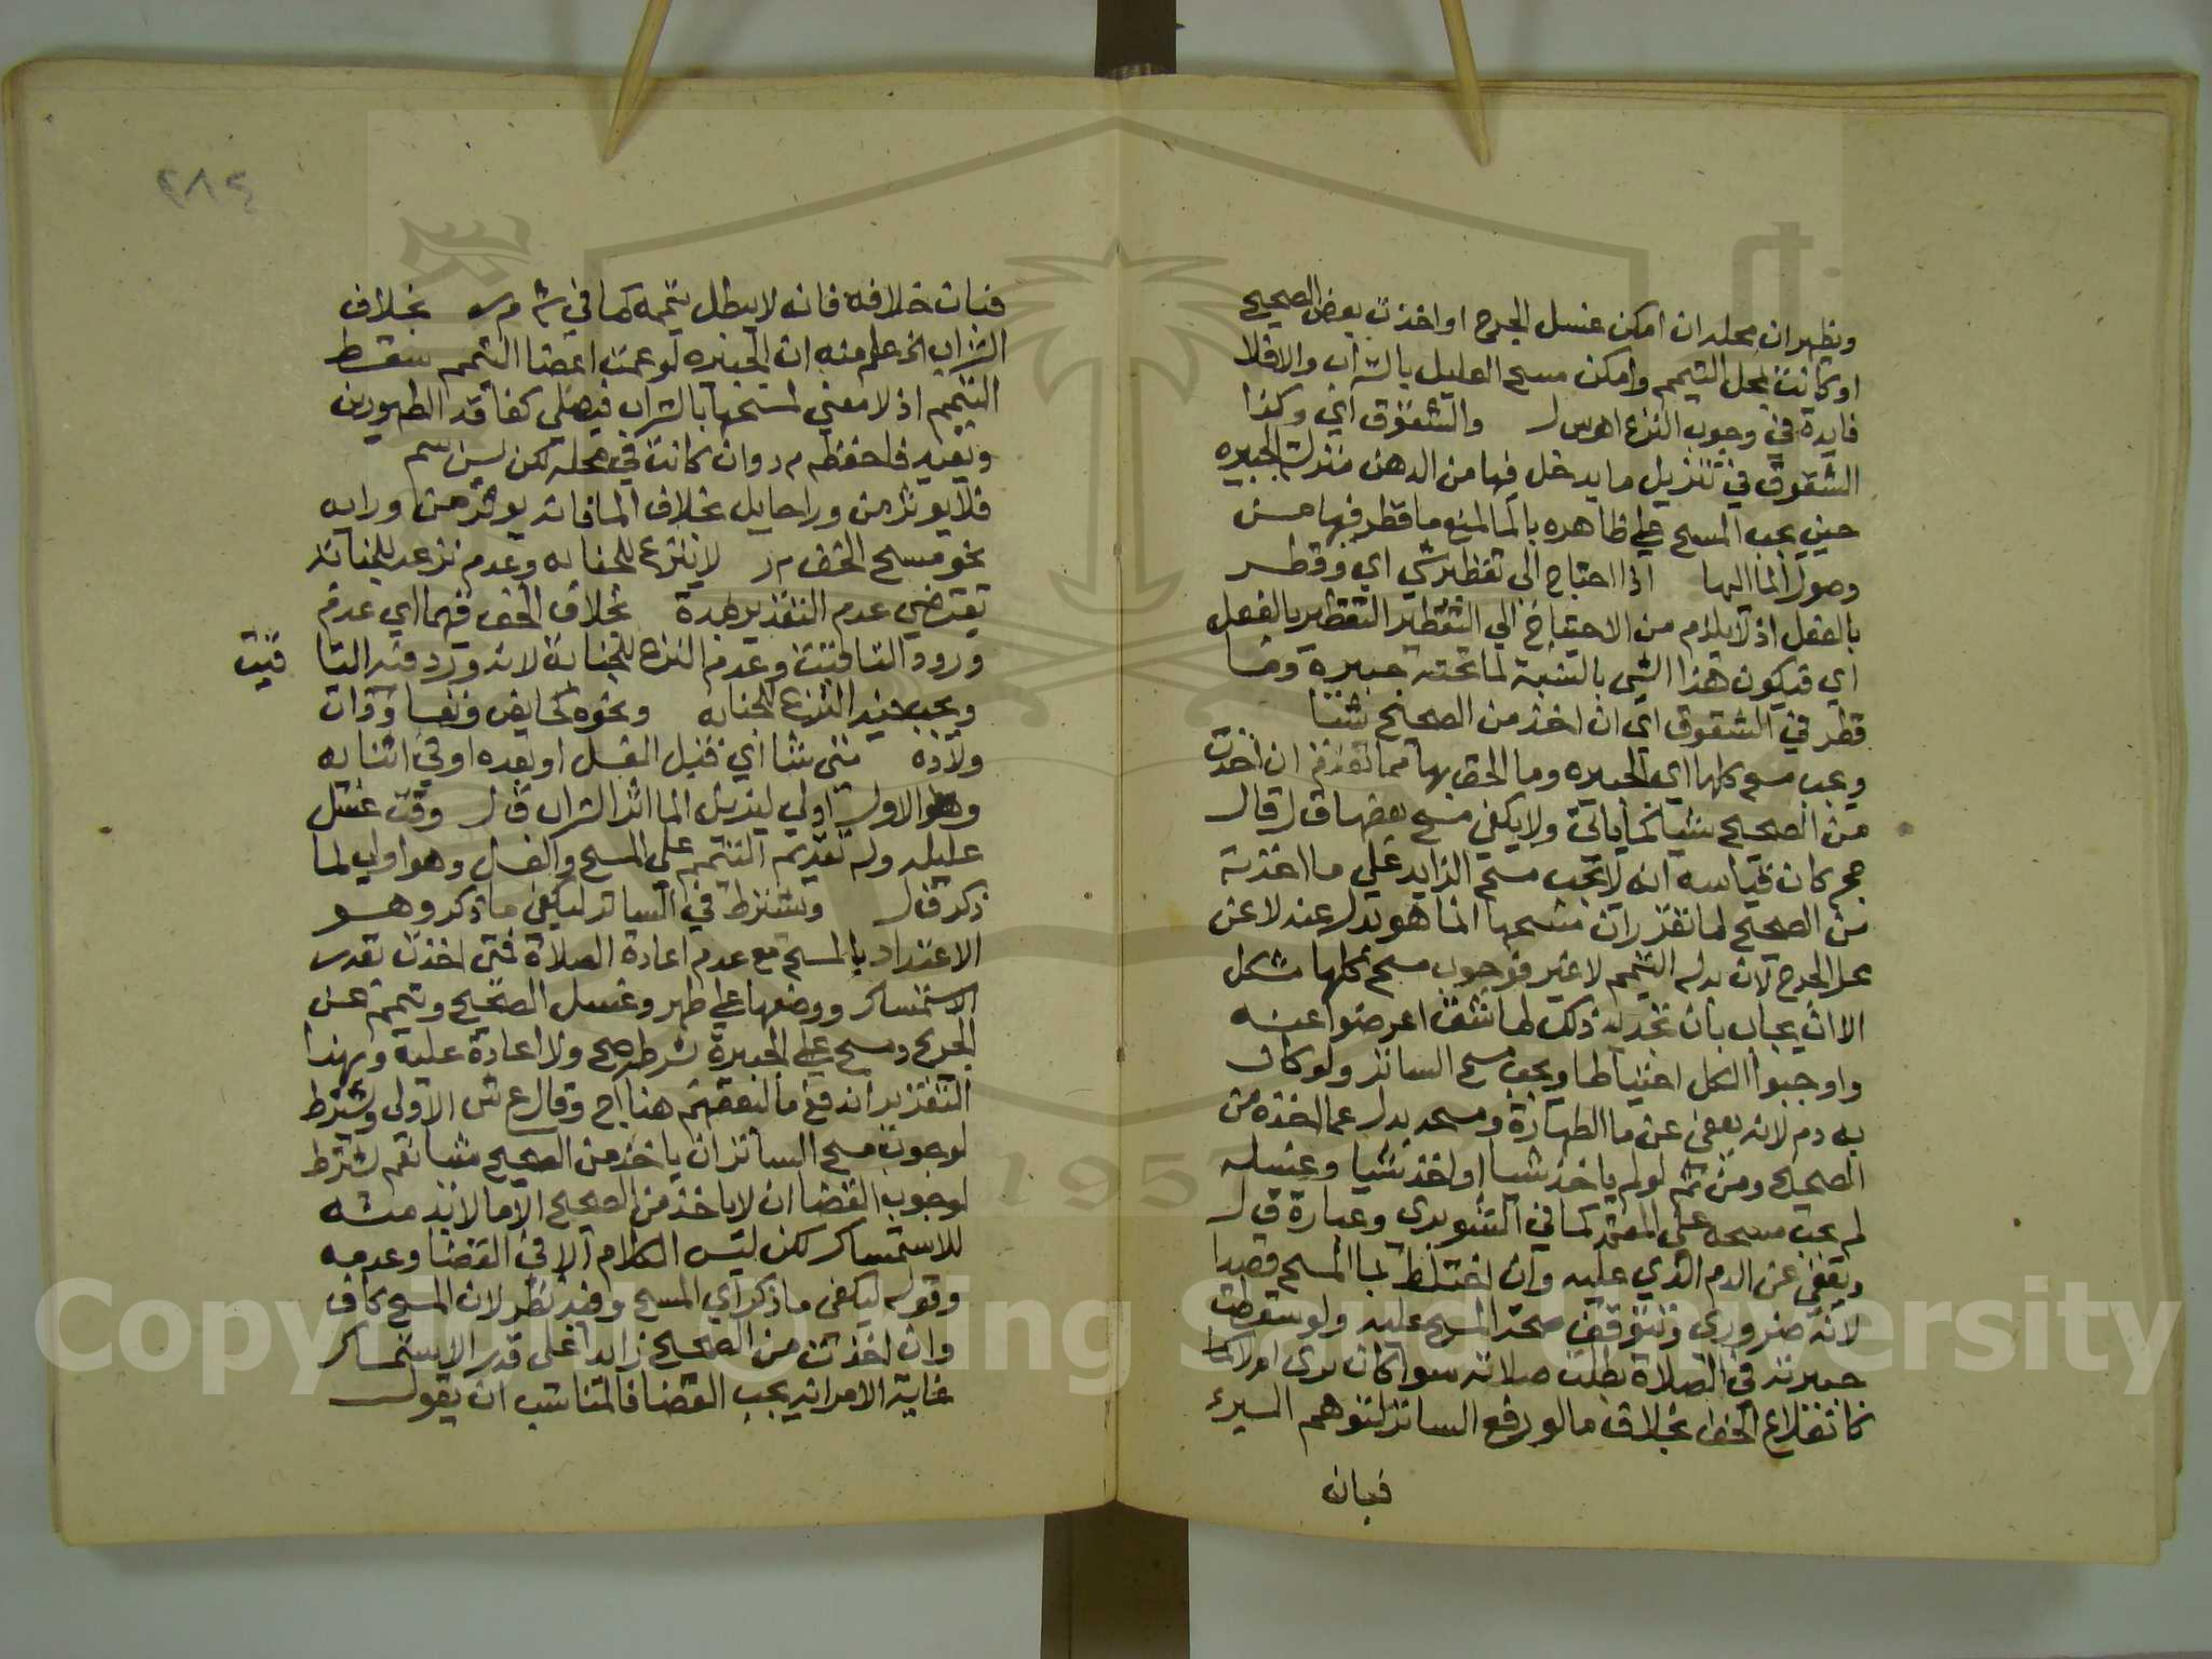 ويظهر ان محله ان امكن غسل الجرح او اخذت بعض الصحيح
او كانت بمحل التيمم وامكن مسح العليل بالتراب والا فلا
فايدة في وجوب النزع اهـ س ل والشقوق اي وكذا
الشقوق في تنزيل ما يدخل فيها من الدهن منزلة الجبيره
حين يجب المسح على ظاهره بالما لمنع ما قطر فيها من
وصول الما اليها اذا احتاج الى تقطير شي اي وقطر
بالفعل اذ لا يلزم من الاحتياج الي التقطير التقطير بالفعل
اي فيكون هذا الشي بالنسبة لما تحته جبيرة وما
قطر في الشقوق اي ان اخذ من الصحيح شيا
ويجب مسح كلها اي الجبيره وما الحق بها مما تقدم ان اخذت
من الصحيح شيا لما ياتي ولا يكفي مسح بعضها ق ل قال
حج كان قياسه انه لا يجب مسح الزايد على ما اخذته
من الصحيح لما تقرر ان مسحها انما هو بدل عنه لا عن
محل الجرح لان بدله التيمم لا غير فوجوب مسح كلها مشكل
الا ان يجاب بان تحديد ذلك لما شق اعرضوا عنه
واوجبوا الكل احتياطا ويجب مسح الساتر ولو كان
به دم لانه يعفى عن ما الطهارة ومسحه بدل عما اخذه من
الصحيح ومن ثم لو لم ياخذ شيا او اخذ شيا وغسله
لم يجب مسحه على المعتمد كما في الشوبري وعبارة ق ل
ويعفى عن الدم الذي عليه وان اختلط بما المسح قصدا
لانه ضروري وتتوقف صحة المسح عليه ولو سقطت
جبيرته في الصلاة بطلت صلاته سوا كان برئ ام لا كما
كانقلاع الخف بخلاف ما لو رفع الساتر لتوهم البرء
فبان
٢٨٤
فبان خلافه فانه لا يبطل تيممه كما في ش م ر بخلاف
التراب الخ علم منه ان الجبيره لو عمت اعضا التيمم سقط
التيمم اذ لا معنى لمسحها بالتراب فيصلي كفاقد الطهورين
ويعيد فاحفظه م ر وان كانت في محله لكن يسن سم
فلا يوثر من ورا حايل بخلاف الما فانه يوثر من ورايه
نحو مسح الخف م ر لا ينزع للجنابه وعدم نزعه للجنابة
تقتضي عدم التقدير بمدة بخلاف الخف فيهما اي عدم
ورود التاقيت وعدم النزع للجنابة لانه ورد فيه التا
قيت
ويجب فيه النزع للجنابه ونحوه كحايض ونفسا وذات
ولادة متى شا اي قبل الغسل او بعده او في اثنايه
وهو الاول اولى ليزيل الما اثر التراب ق ل وقت غسل
عليله وله تقديم التيمم على المسح والغسل وهو اولى لما
ذكر ق ل ويشترط في الساتر ليكفي ما ذكر وهو
الاعتداد بالمسح مع عدم اعادة الصلاة فمتى اخذت بقدر
الاستمساك ووضعها على طهر وغسل الصحيح وتيمم عن
الجريح ومسح على الجبيرة بشرطه صح ولا اعادة عليه وبهذا
التقرير اندفع ما لبعضهم هنا اج وقال ع ش الاولى ويشترط
لوجوب مسح الساتر ان ياخذ من الصحيح شيا نعم يشترط
لوجوب القضا ان لا ياخذ من الصحيح الا ما لا بد منه
للاستمساك لكن ليس الكلام الا في القضا وعدمه
وقوله ليكفي ما ذكر اي المسح وفيه نظر لان المسح كاف
وان اخذت من الصحيح زايدا على قدر الاستمساك
غاية الامر انه يجب القضا فالمناسب ان يقول
Copyright © King Saud University
1957